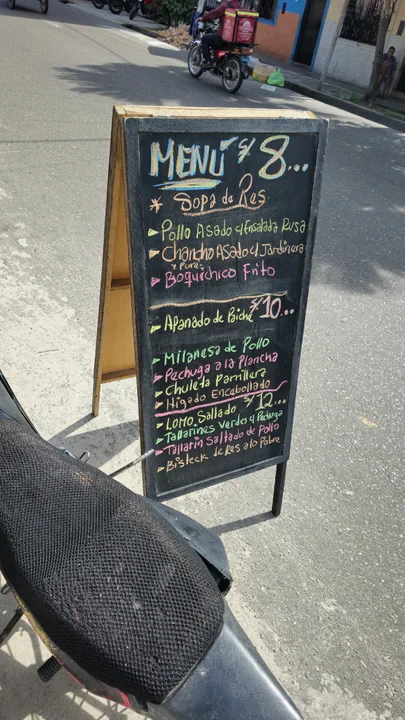 MENÚ S/. 8...
* Sopa de Res
► Pollo Asado c/ Ensalada Rusa
► Chancho Asado c/ Jardinera
y Pure
► Boquichico Frito
S/. 10...
► Apanado de Paiche
► Milanesa de Pollo
► Pechuga a la Plancha
► Chuleta Parrillera
► Higado Encebollado
S/. 12...
► Lomo Saltado
► Tallarines Verdes c/ Pechuga
► Tallarin Saltado de Pollo
► Bisteck de Res a lo Pobre